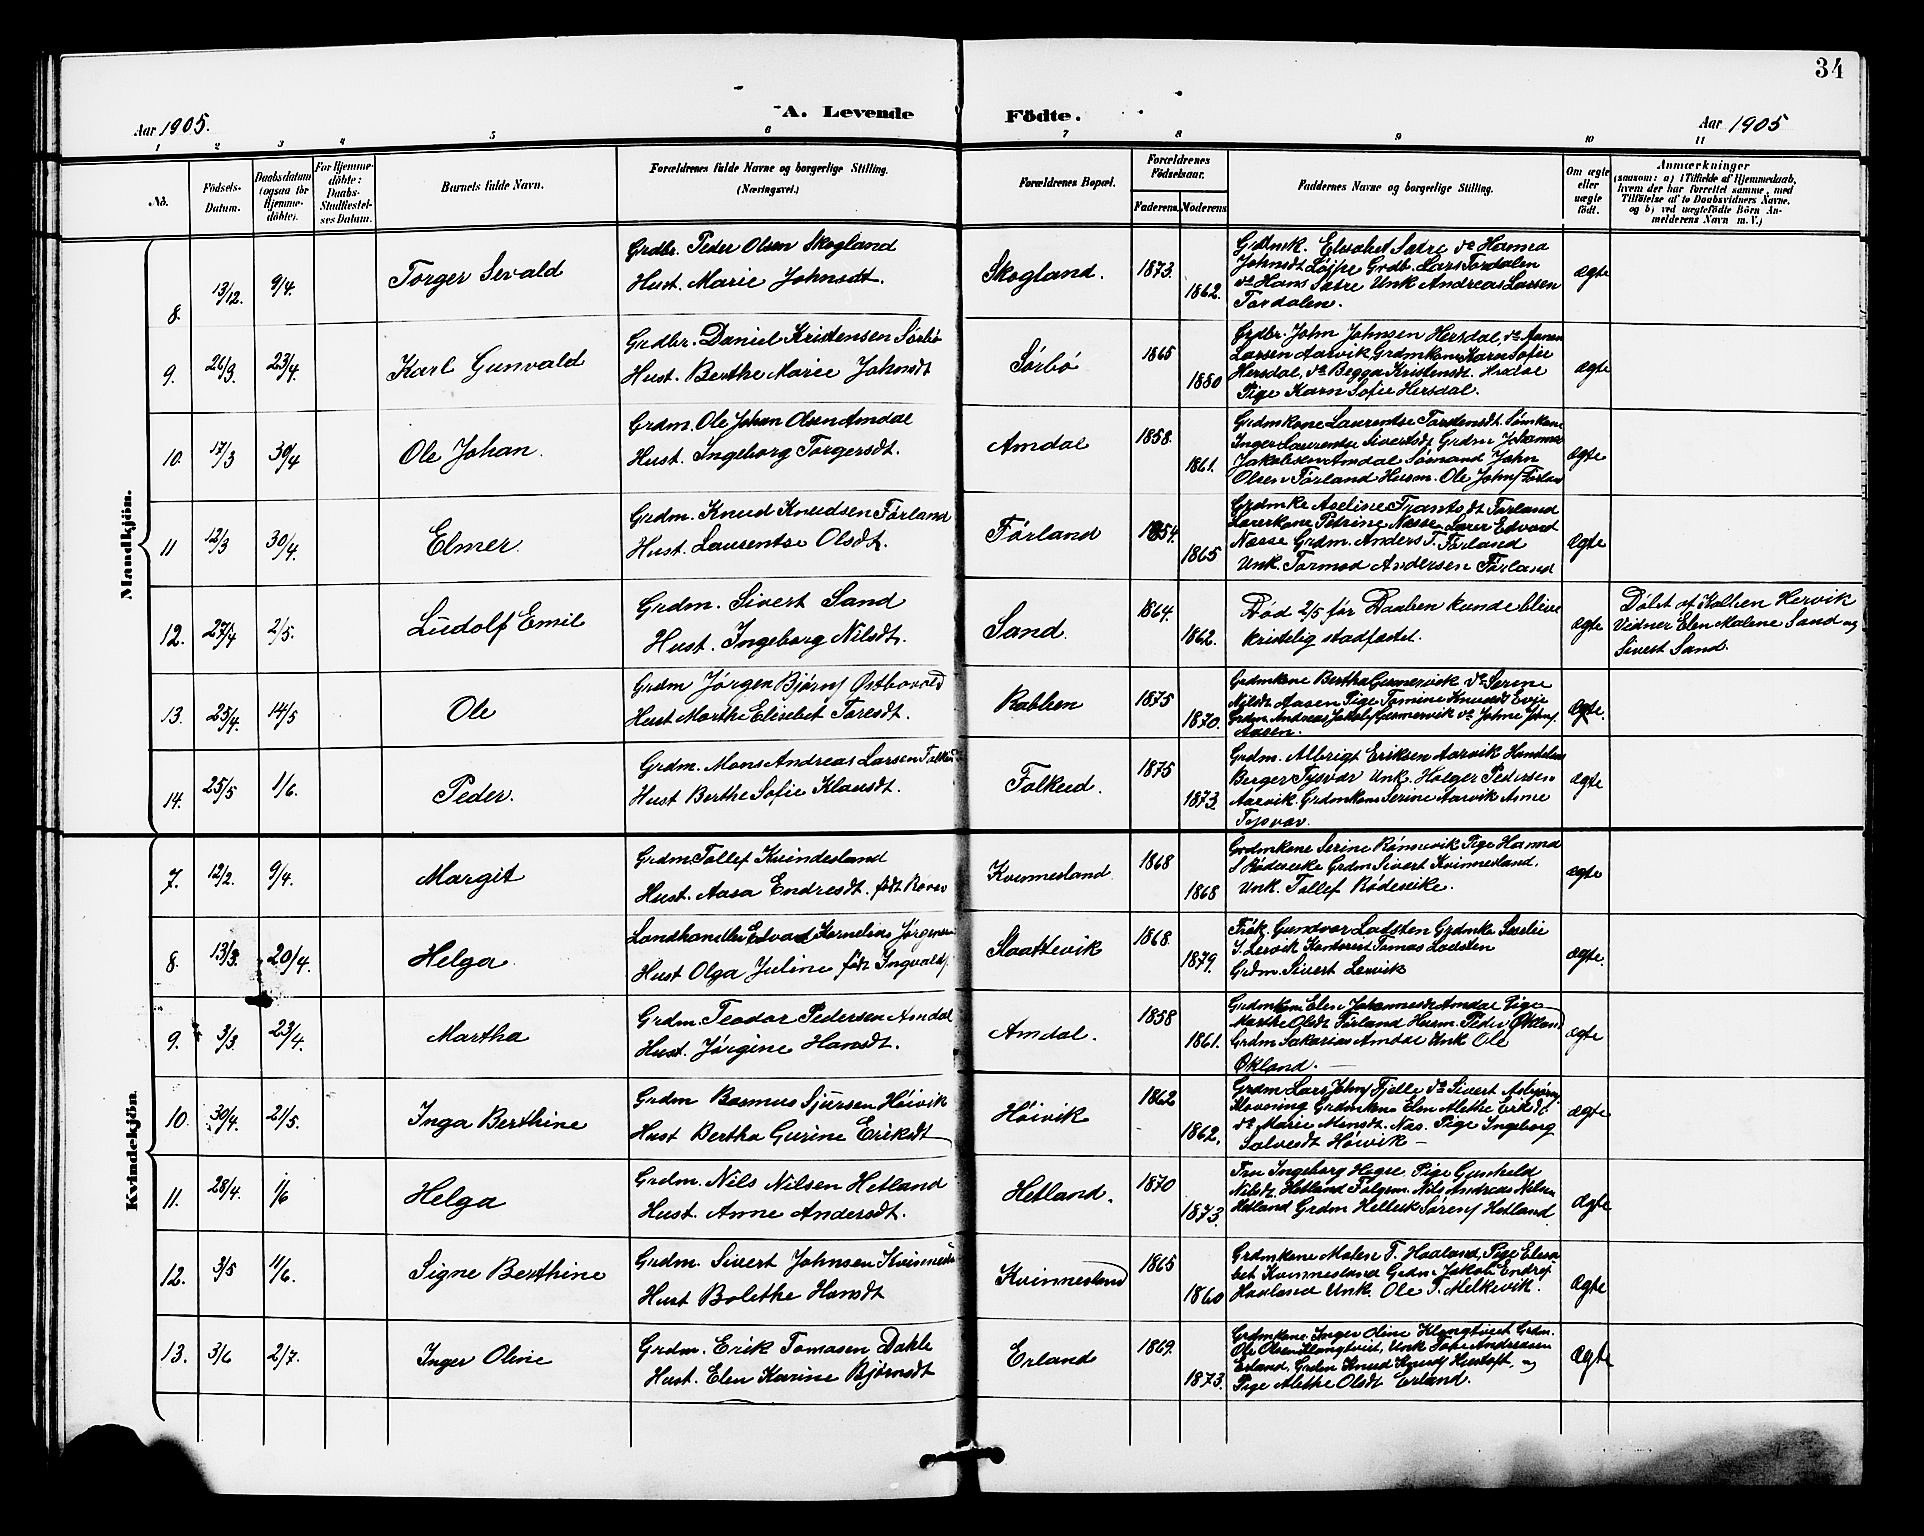 34
Aar 1905.
A. Levende Födte.
Aar 1905
1 2 3 4 5 6 7 8 9 10 11
No.
Födsels-
Datum.
Daabsdatum
(ogsaa for
Hjemme-
döbte).
For Hjemme-
döbte:
Daabs-
Stadfæstel-
ses Datum.
Barnets fulde Navn.
Forældrenes fulde Navne og borgerlige Stilling.
(Næringsvei.)
Forældrenes Bopæl.
Forældrenes
Födselsaar.
Faderens. Moderens.
Faddernes Navne og borgerlige Stilling.
Om ægte
eller
uægte
födt.
Anmærkninger
(saasom: a) i Tilfælde af Hjemmedaab,
hvem der har forrettet samme, med
Tilföielse af to Daabsvidners Navne,
og b) ved uægtefödte Börn An-
melderens Navn m. V.)
Mandkjön.
8. 13/12. 9/4. Torger Sevald
Grdbr. Peder Olsen Skogland
Hust. Marie Johnsdt.
Skogland. 1873. 1862.
Grdmk. Elisabet Sætre do Hanna
Johnsdt Løjpe Grdb. Lars Tordalen
do Hans Sætre Unk Andreas Larsen
Tordalen.
ægte
9. 26/3. 23/4. Karl Gunvald
Grdbr. Daniel Kristensen Sørbø
Hust. Berthe Marie Johnsdt
Sørbø 1865 1880
Grdbr. John Johnsen Hersdal, do
Larsen Aarvik, Grdmkone Karn Sofie
Hersdal, do Begga Kristensdt.
Pige Karn Sofie Hersdal.
ægte
10. 17/3 30/4 Ole Johan.
Grdm. Ole Johan Olsen Amdal
Hust. Ingeborg Torgersdt.
Amdal 1858. 1861.
Grdmkone Laurentse Torstensdt Sømkone
Inger Laurentse Sivertsdt Grdm Johannes
Jakobsen Amdal Sømand John
Olsen Førland Husm. Ole Johns Førland
ægte
11 12/3 30/4. Elmer.
Grdm. Knud Knudsen Førland
Hust. Laurentse Olsdt.
Førland 1854. 1865
Grdmke Aseline Frantsdt Førland
Lærerkone Petrine Næsse Lærer Edvard
Næsse Grdm. Anders T. Førland
Unk. Tormod Andersen Førland
ægte
12. 27/4 2/5. Ludolf Emil
Grdm. Sivert Sand
Hust. Ingeborg Nilsdt.
Sand. 1864. 1862.
Død 2/5 før Daaben kunde blive
kristelig stadfæstet.
ægte
Døbt af Kolben Hervik
Vidner Elen Malene Sand og
Sivert Sand.
13. 25/4. 14/5 Ole
Grdm Jørgen Bjørns Østbovold
Hust Marthe Elisebet Toresdt.
Rabben 1875 1870.
Grdmkone Bertha Gunnersvik do Serine
Nilsdt Aasen Pige Tomine Knudsdt Evje
Grdm. Andreas Jakobs Gunnersvik do Johne Johns
Aasen.
ægte.
14. 25/5 1/6. Peder.
Grdm. Mons Andreas Larsen
Hust Berthe Sofie Klausdt.
Falkeid. 1875 1873
Grdm. Albrigt Eriksen Aarvik
Berger Tysvær Unk. Holger Pedersen
Aarvik. Grdmkone Serine Aarvik Anne
Tysvær.
ægte
Kvindekjön.
7. 12/2. 9/4. Margit
Grdm Tollef Kvindesland
Hust. Aasa Endresdt. født
Kvinnesland 1868 1868
Grdmkone Serine Rønnevik Pige Hanna
S Rødeseike Grdm Sivert Kvinnesland,
Unk. Tollef Rødeseike.
ægte
8. 13/3. 20/4. Helga.
Landhandler Edvard Kornelius
Hust Olga Juline født Ingvalds.
Slaattevik 1868. 1879.
Frøk. Gundvor Ladsten Grdmke
S. Lervik Kontorist Tomas Ladsten
Grdm. Sivert Lervik
ægte.
9. 3/3. 23/4. Martha
Grdm. Teodor Pedersen Amdal
Hust. Jørgine Hansdt.
Amdal. 1858 1861.
Grdmkone Elen Johannesdt Amdal Pige
Marthe Olsdt Førland Husm. Peder Økland
Grdm Sakarias Amdal Unk Ole
Økland.
ægte
10. 30/4. 21/5. Inga Berthine
Grdm Rasmus Sjursen Høivik
Hust Bertha Gurine Eriksdt
Høivik 1862 1862.
Grdm Lars Johns Fjelle do Sivert
Grdmkone Elen Alethe Eriksdt
do Marie Monsdt. Næs. Pige Ingeborg
Salvesdt Høivik
ægte
11. 28/4. 1/6 Helga
Grdm. Nils Nilsen Hetland
Hust. Anne Andersdt.
Hetland. 1870 1873.
Fru Ingeborg Hegre Pige Gunhild
Nilsdt Hetland Folgem. Nils Andreas Nilsen
Hetland Grdm Hellesk Sørens Hetland
ægte
12. 3/5 11/6. Signe Berthine
Grdm. Sivert Johnsen
Hust Bolethe Hansdt
Kvinnesland 1865 1860
Grdmkone Malen T. Haaland, Pige Elisa
bet Kvinnesland Grdm Jakob Endres
Haaland Unk. Ole T. Melkevik.
ægte
13. 3/6 2/7. Inger Oline
Grdm. Erik Tomasen Dakle
Hust. Elen Karine Bjørnsdt
Erland 1869. 1873.
Grdmkone Inger Oline Klongtveit Grdm.
Ole Olsen Klongtveit, Unk Tore Andreasen
Erland, Grdm Knud Knuds og
Pige Alethe Olsdt Erland.
ægte